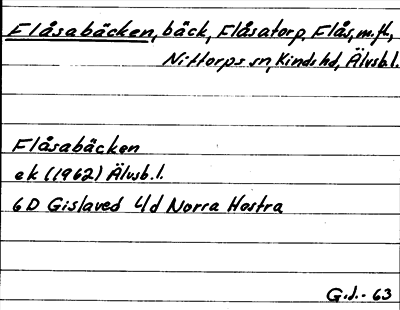 Flåsabäcken, bäck, Flåsatorp, Flås, m.fl.,
Nittorps sn, Kinds hd, Älvsb.l.
Flåsabäcken
ek (1962) Älvsb.l.
6D Gislaved 4d Norra Hestra
G.J.-63